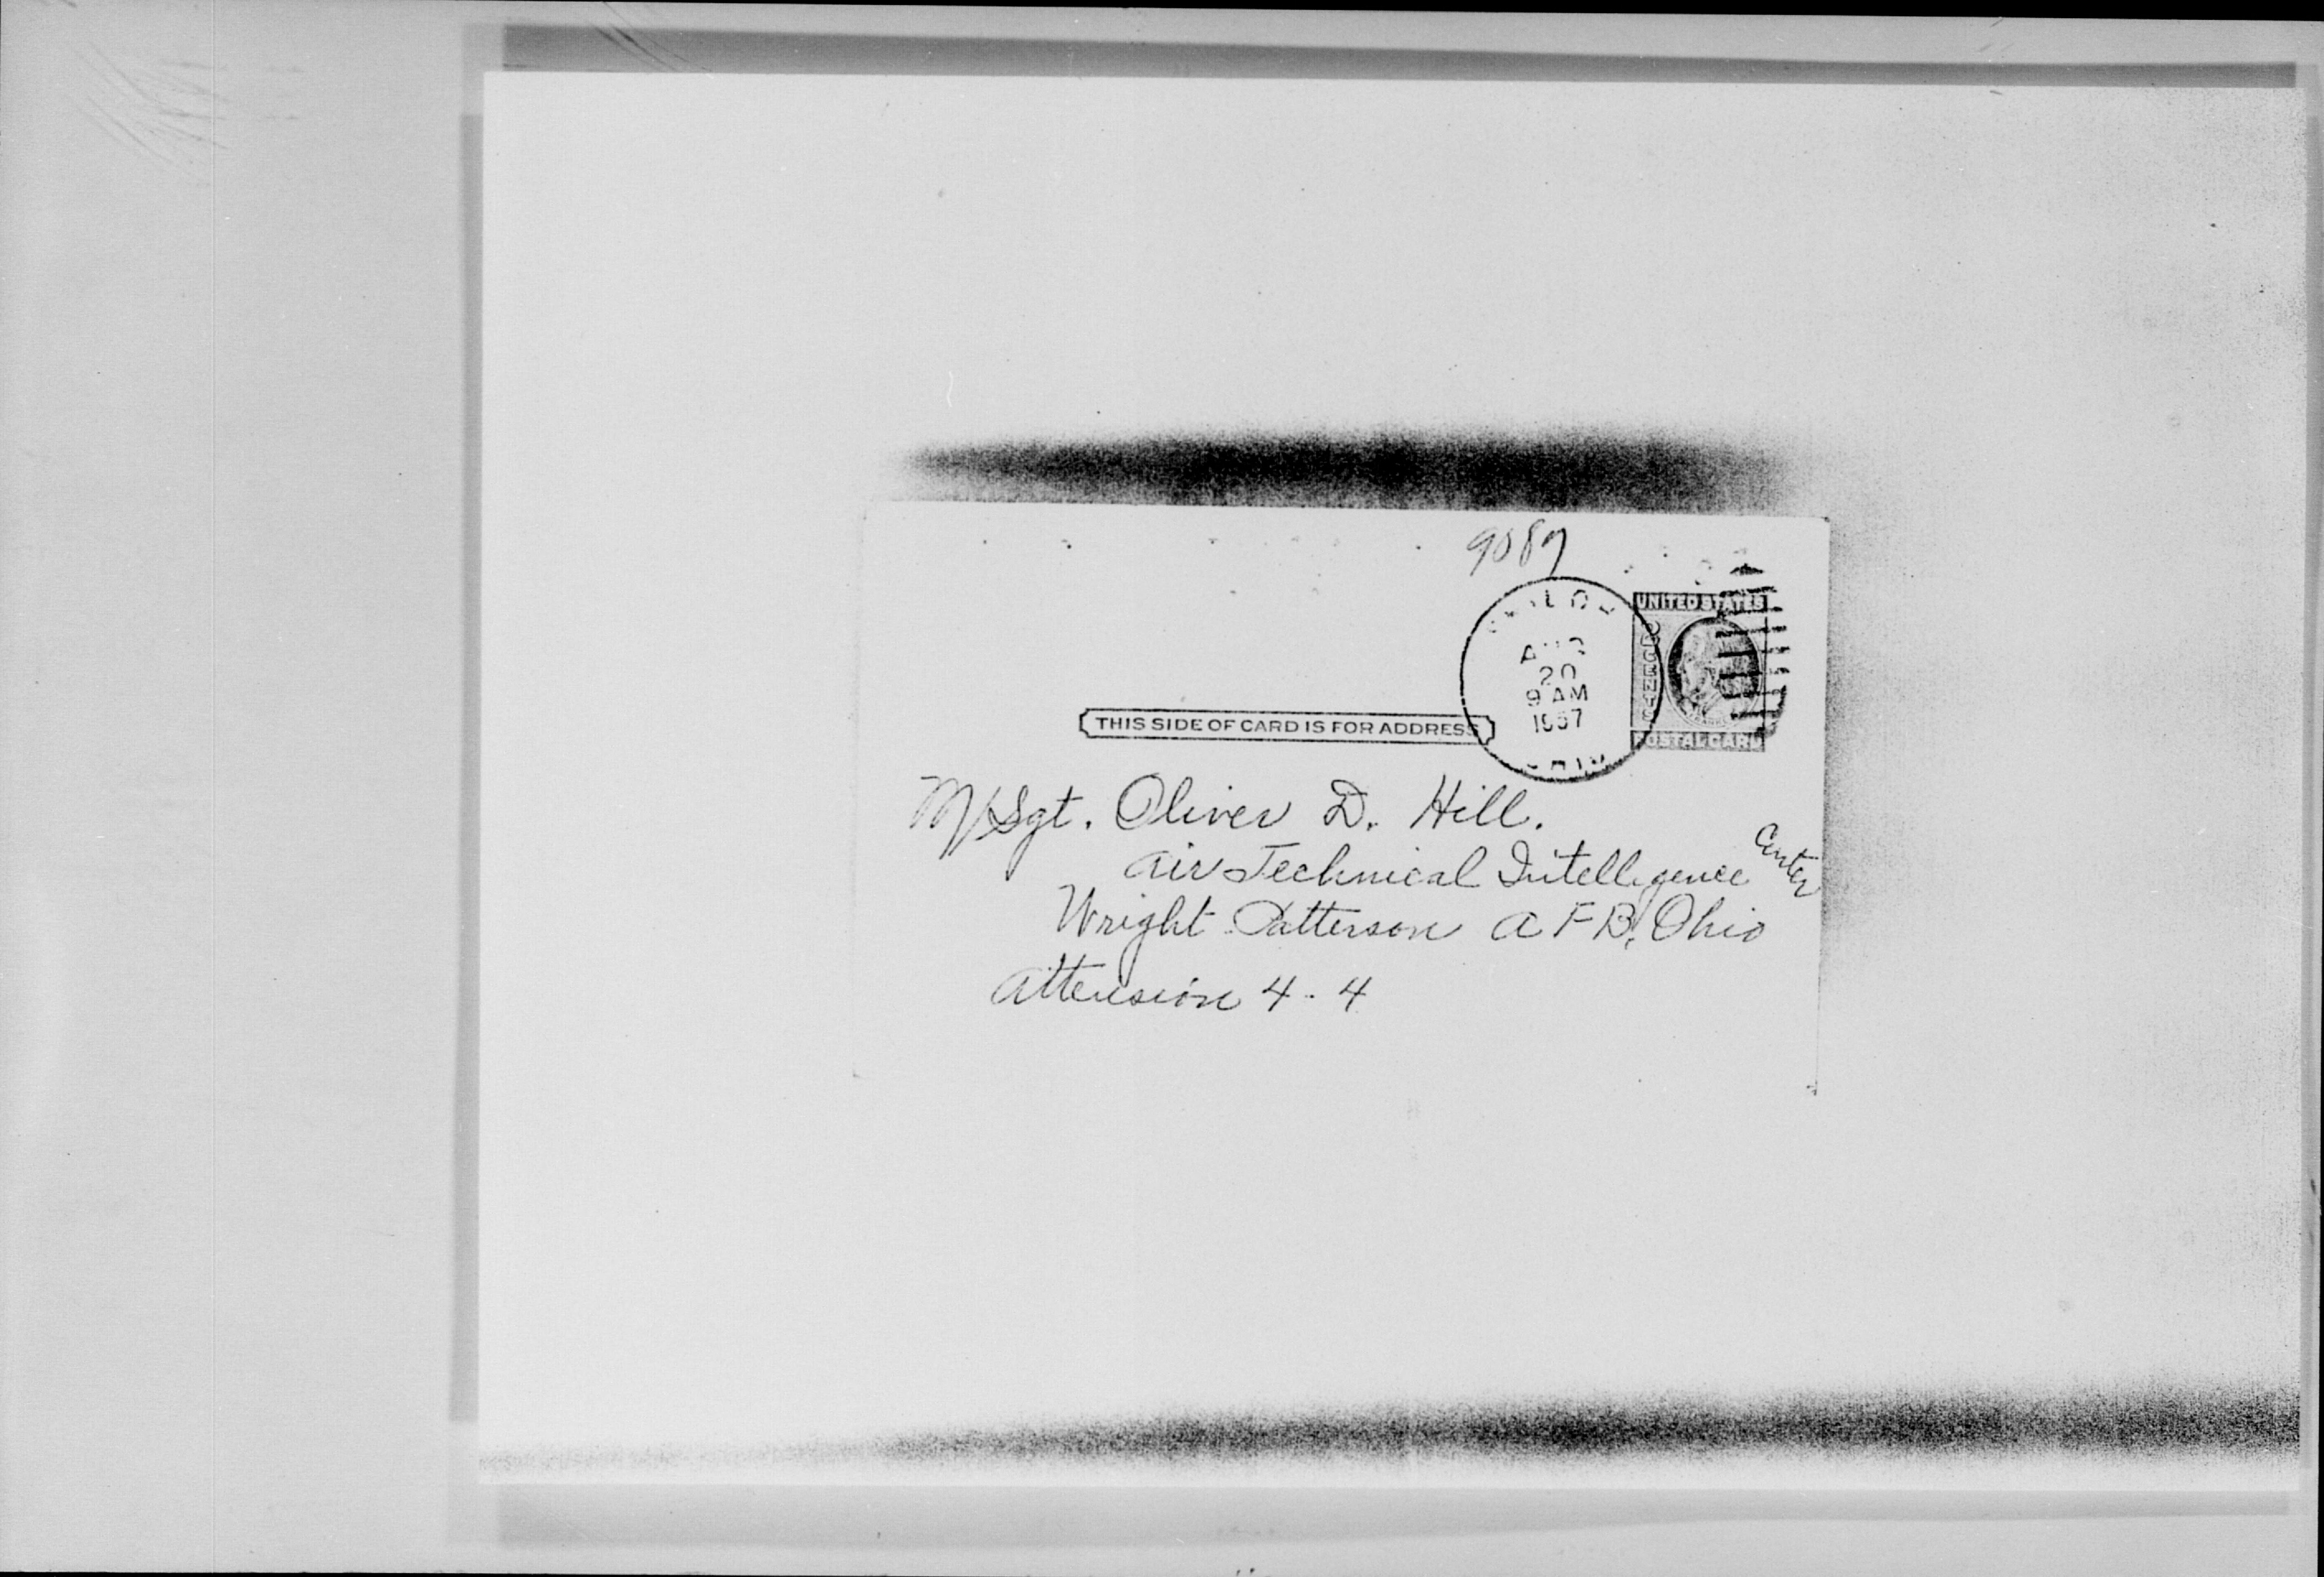 9087
UNITED STATES
2 CENTS
AUG
20
9 AM
1957
THIS SIDE OF CARD IS FOR ADDRESS
POSTAL CARD
OHIO
M/Sgt. Oliver D. Hill.
Air Technical Intelligence Center
Wright Patterson AFB, Ohio
Attension 4-4